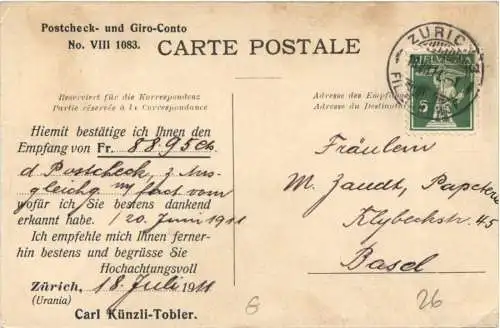 Postcheck- und Giro-Conto
No. VIII 1083.
CARTE POSTALE
ZÜRICH
HELVETIA
5
Reserviert für die Korrespondenz
Partie réservée à la Correspondance
Adresse des Empfängers
Adresse du Destinataire
Hiemit bestätige ich Ihnen den
Empfang von Fr. 88.95 cts
d Postcheck, z. Aus-
gleichg. m/ fact vom
wofür ich Sie bestens dankend
erkannt habe. / 20. Juni 1911
Ich empfehle mich Ihnen ferner-
hin bestens und begrüsse Sie
Hochachtungsvoll
Zürich, 18. Juli 1911
(Urania)
Carl Künzli-Tobler.
Fräulein
M. Zaudt, Papeterie
Klybeckstr. 45
Basel
26